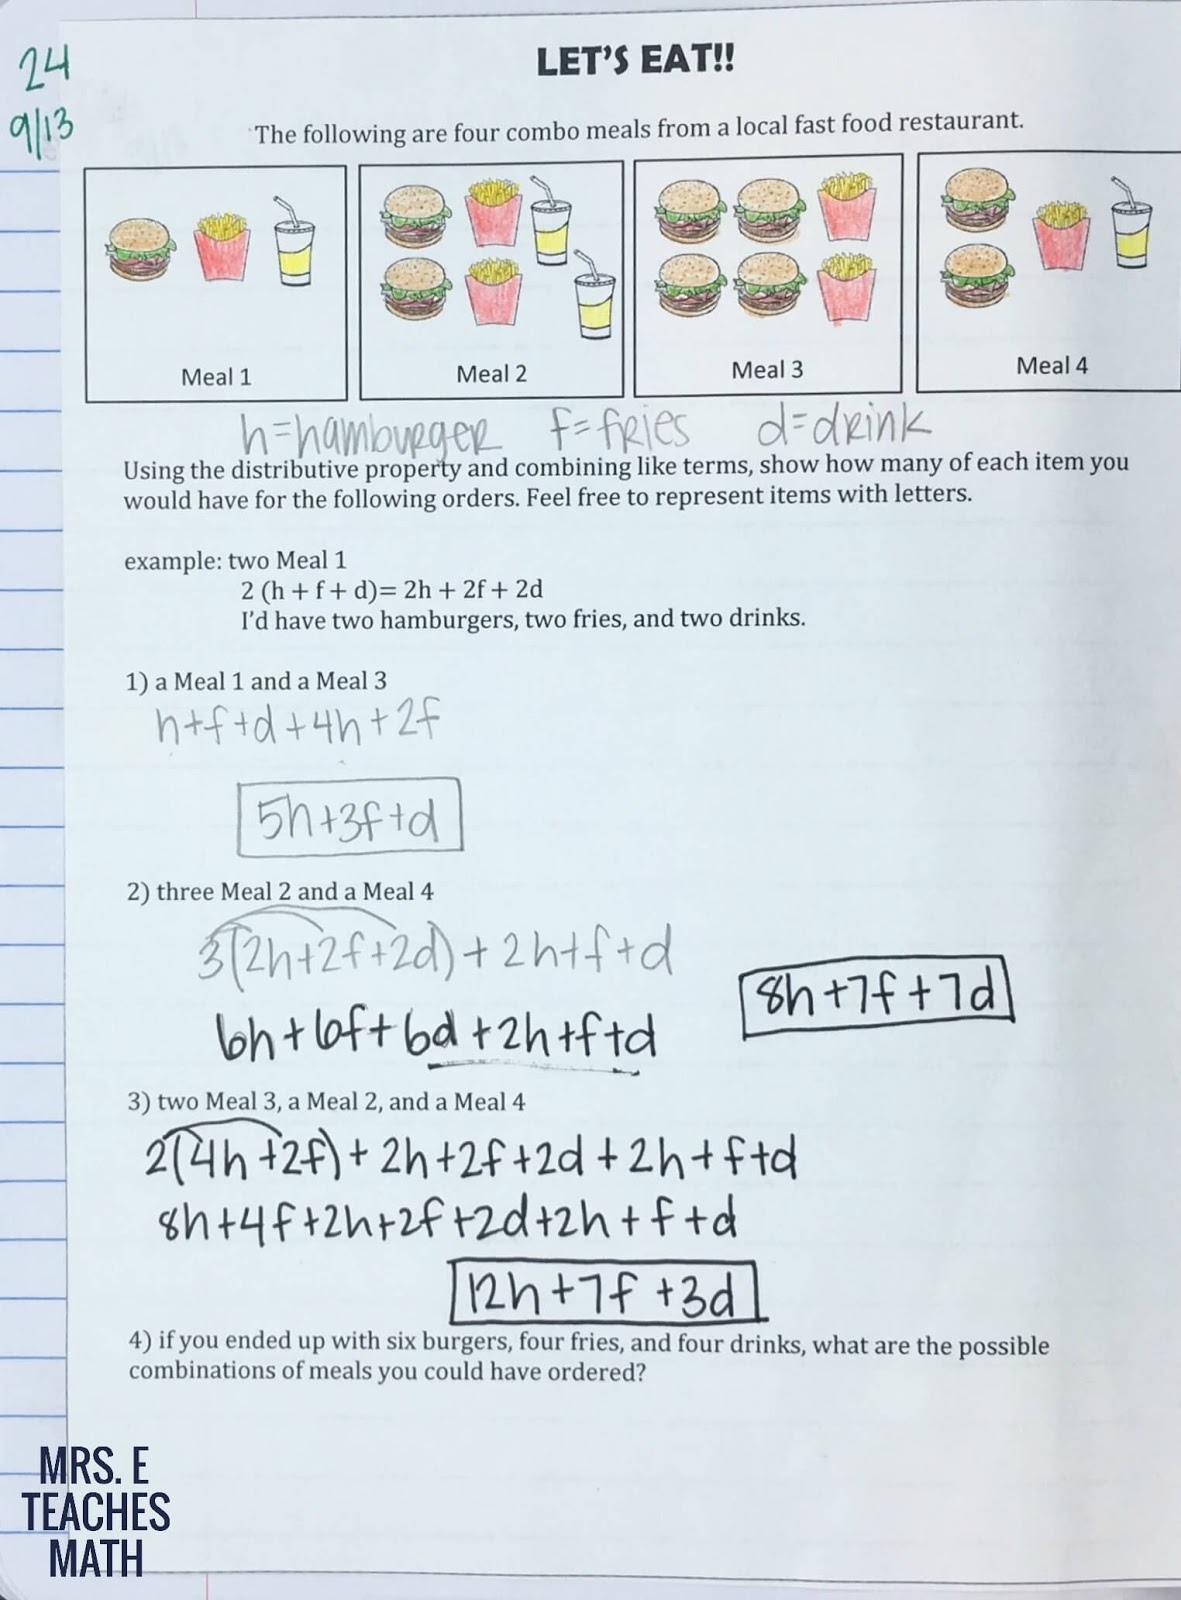 24
9/13
LET'S EAT!!
The following are four combo meals from a local fast food restaurant.
Meal 1
Meal 2
Meal 3
Meal 4
h=hamburger f=fries d=drink
Using the distributive property and combining like terms, show how many of each item you
would have for the following orders. Feel free to represent items with letters.
example: two Meal 1
2 (h + f + d)= 2h + 2f + 2d
I'd have two hamburgers, two fries, and two drinks.
1) a Meal 1 and a Meal 3
h+f+d+4h+2f
5h+3f+d
2) three Meal 2 and a Meal 4
3(2h+2f+2d)+2h+f+d
6h+6f+6d+2h+f+d
8h+7f+7d
3) two Meal 3, a Meal 2, and a Meal 4
2(4h+2f)+2h+2f+2d+2h+f+d
8h+4f+2h+2f+2d+2h+f+d
12h+7f+3d
4) if you ended up with six burgers, four fries, and four drinks, what are the possible
combinations of meals you could have ordered?
MRS. E
TEACHES
MATH